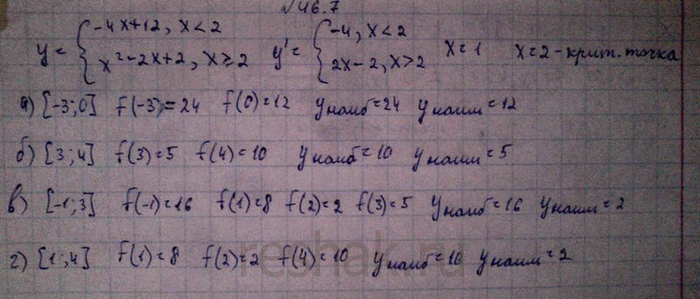 √46.7
y = { -4x+12, x<2 y' = { -4, x<2 x=1 x=2 - крит. точка
x²-2x+2, x≥2 2x-2, x>2
а) [-3;0] f(-3)=24 f(0)=12 yнаиб=24 yнаим=12
б) [3;4] f(3)=5 f(4)=10 yнаиб=10 yнаим=5
в) [-1;3] f(-1)=16 f(1)=8 f(2)=2 f(3)=5 yнаиб=16 yнаим=2
г) [1;4] f(1)=8 f(2)=2 f(4)=10 yнаиб=10 yнаим=2
reshak.ru